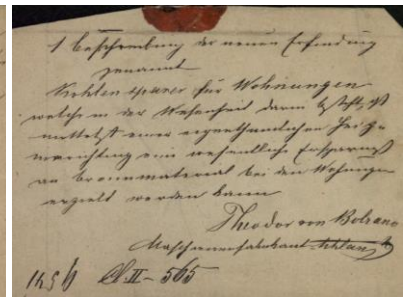 1 Beschreibung der neuen Erfindung
genannt
Kohlensparer für Wohnungen
welche in der Wesenheit darin besteht, daß
mittelst einer eigenthümlichen Heiz
einrichtung eine wesentliche Ersparniß
an Brennmaterial bei den Wohnungen
erzielt werden kann
Theodor von Bolzano
Maschinenfabrikant Schlan
Cl. II - 565